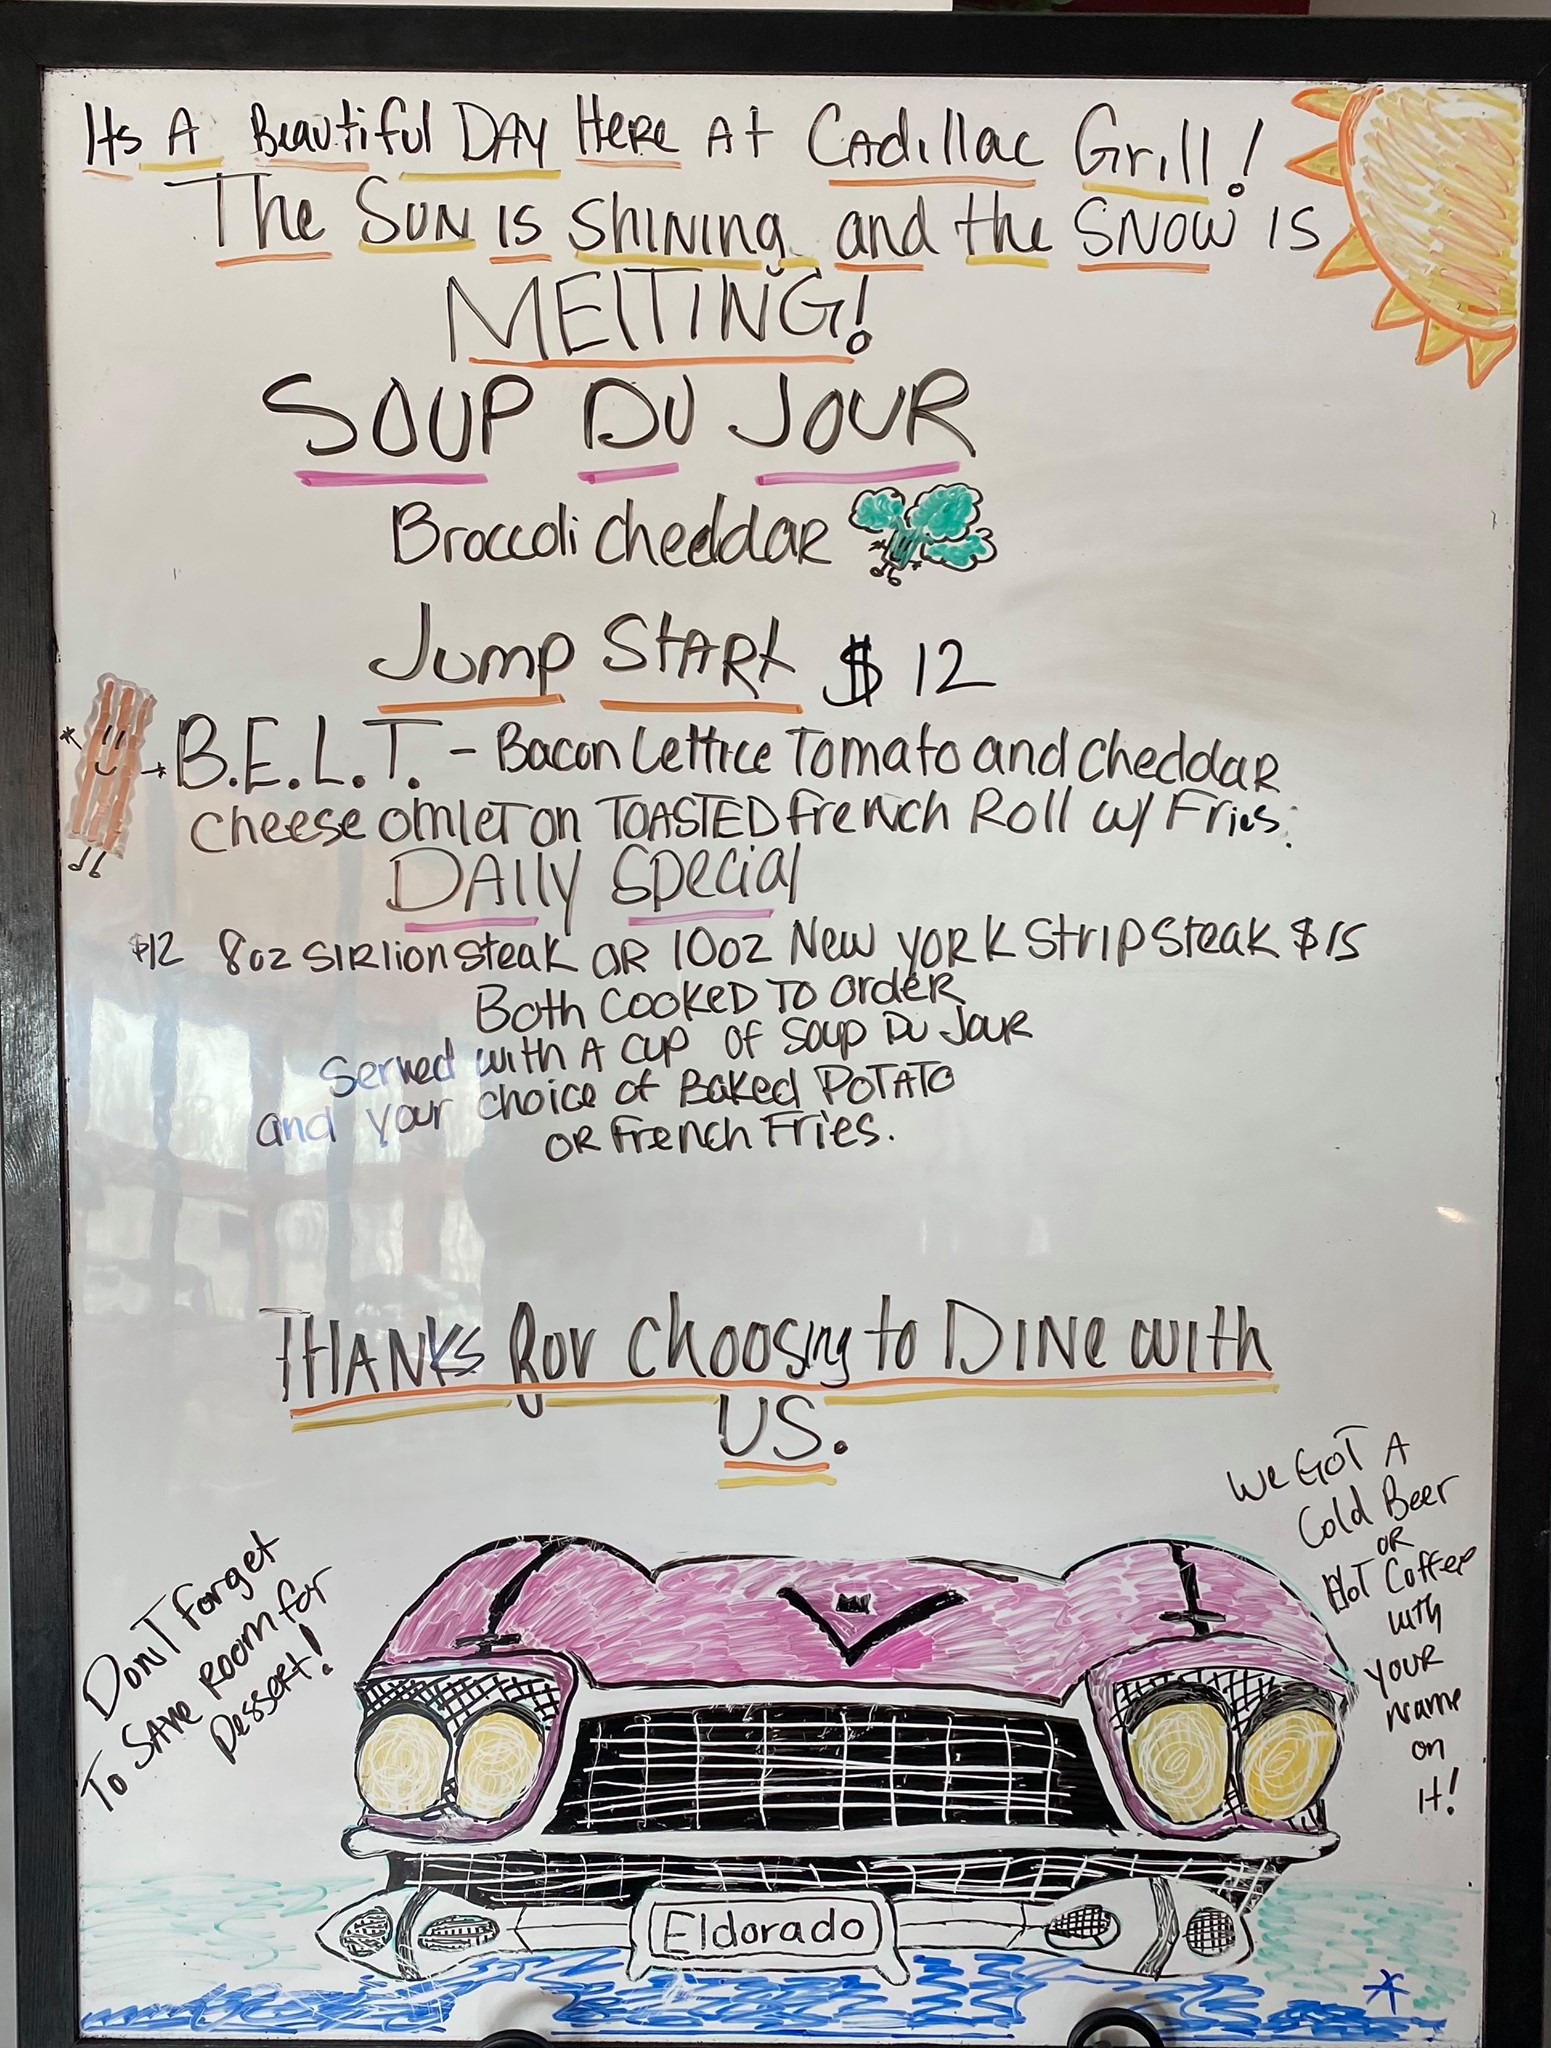 Its A Beautiful DAY Here At Cadillac Grill!
The Sun is Shining and the Snow is
MEITING!
SOUP DU JOUR
Broccoli cheddar
Jump Start $12
B.E.L.T. - Bacon Lettice Tomato and cheddar
cheese omlet on TOASTED french Roll w/ Fries.
Daily Special
$12 8oz sirlion steak or 10oz New york strip steak $15
Both cooked to order
Served with a cup of Soup Du Jour
and your choice of Baked POTATO
or french Fries.
THANKS for choosing to Dine with
US.
Dont forget
To Save Room for
Dessert!
We Got A
Cold Beer
or
Hot Coffee
with
your
name
on
it!
Eldorado